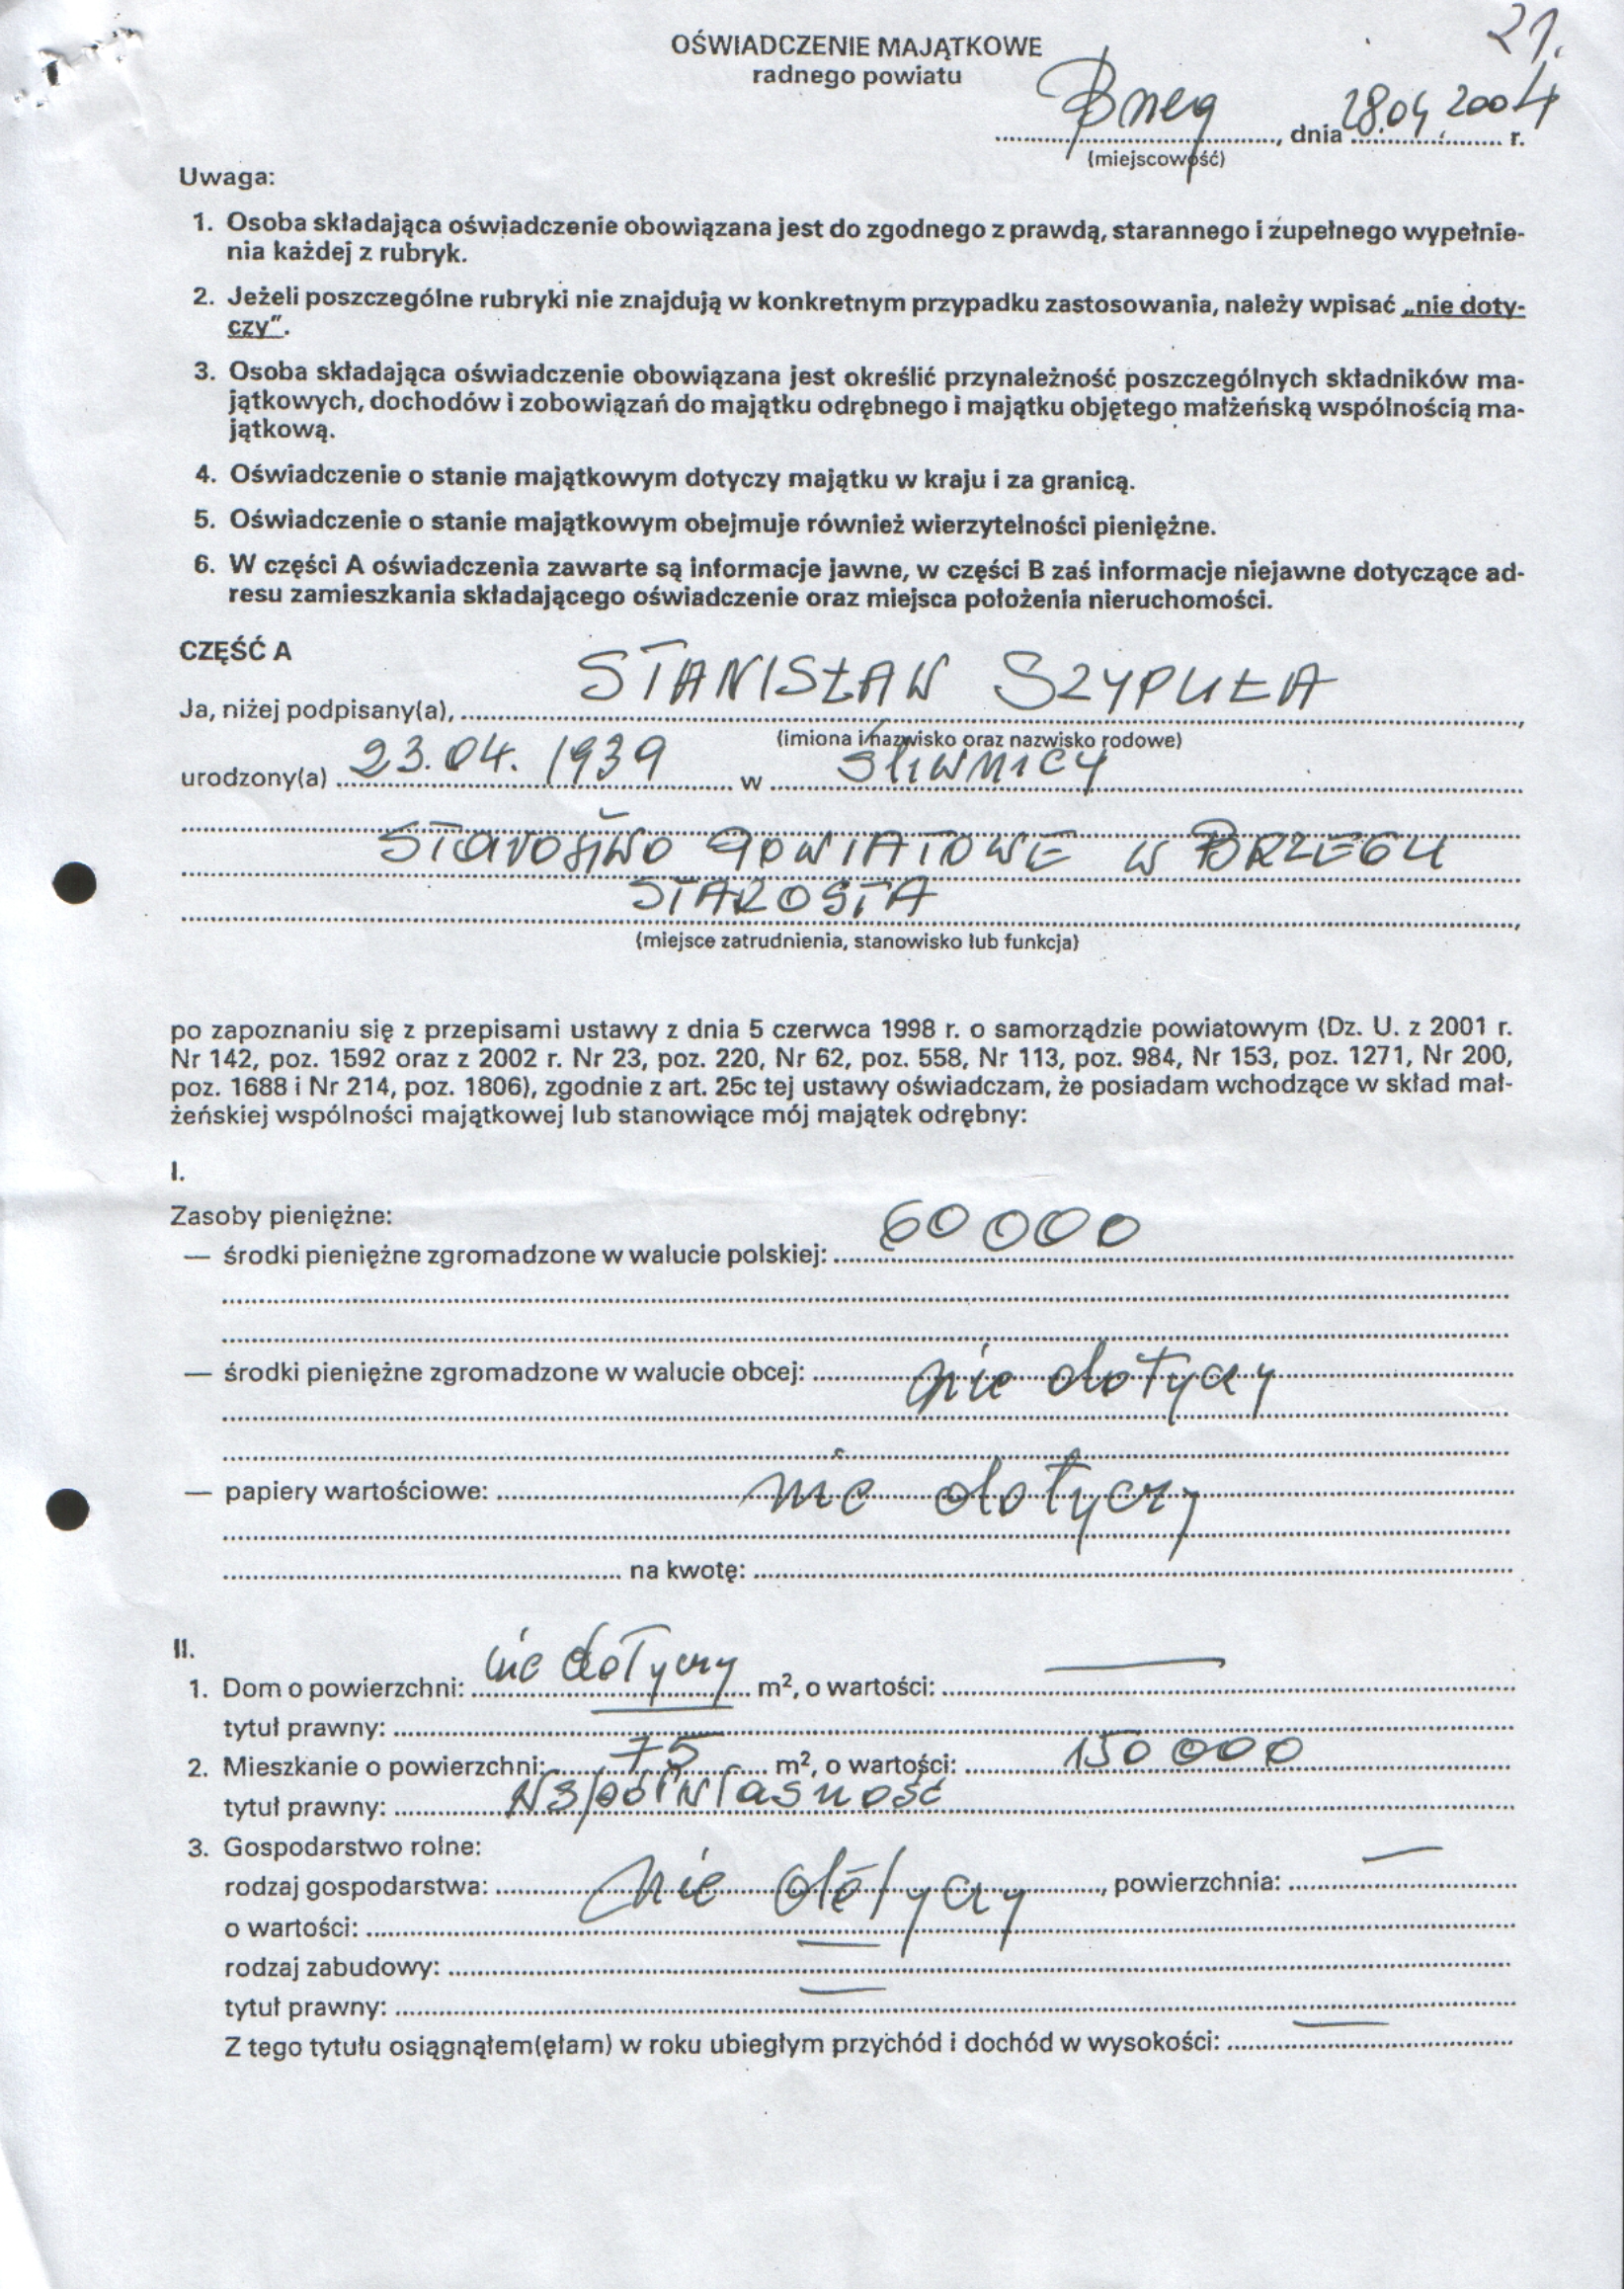 21.
OŚWIADCZENIE MAJĄTKOWE
radnego powiatu
Brzeg, dnia 28.04.2004 r.
(miejscowość)
Uwaga:
1. Osoba składająca oświadczenie obowiązana jest do zgodnego z prawdą, starannego i zupełnego wypełnie-
nia każdej z rubryk.
2. Jeżeli poszczególne rubryki nie znajdują w konkretnym przypadku zastosowania, należy wpisać „nie doty-
czy".
3. Osoba składająca oświadczenie obowiązana jest określić przynależność poszczególnych składników ma-
jątkowych, dochodów i zobowiązań do majątku odrębnego i majątku objętego małżeńską wspólnością ma-
jątkową.
4. Oświadczenie o stanie majątkowym dotyczy majątku w kraju i za granicą.
5. Oświadczenie o stanie majątkowym obejmuje również wierzytelności pieniężne.
6. W części A oświadczenia zawarte są informacje jawne, w części B zaś informacje niejawne dotyczące ad-
resu zamieszkania składającego oświadczenie oraz miejsca położenia nieruchomości.
CZĘŚĆ A
Ja, niżej podpisany(a), STANISŁAW SZYPUŁA,
(imiona i nazwisko oraz nazwisko rodowe)
urodzony(a) 23.04.1939 w Śliwnicy
STAROSTWO POWIATOWE W BRZEGU
STAROSTA,
(miejsce zatrudnienia, stanowisko lub funkcja)
po zapoznaniu się z przepisami ustawy z dnia 5 czerwca 1998 r. o samorządzie powiatowym (Dz. U. z 2001 r.
Nr 142, poz. 1592 oraz z 2002 r. Nr 23, poz. 220, Nr 62, poz. 558, Nr 113, poz. 984, Nr 153, poz. 1271, Nr 200,
poz. 1688 i Nr 214, poz. 1806), zgodnie z art. 25c tej ustawy oświadczam, że posiadam wchodzące w skład mał-
żeńskiej wspólności majątkowej lub stanowiące mój majątek odrębny:
I.
Zasoby pieniężne:
— środki pieniężne zgromadzone w walucie polskiej: 60 000
— środki pieniężne zgromadzone w walucie obcej: nie dotyczy
— papiery wartościowe: nie dotyczy
na kwotę:
II.
1. Dom o powierzchni: nie dotyczy m², o wartości: —
tytuł prawny: —
2. Mieszkanie o powierzchni: 75 m², o wartości: 150 000
tytuł prawny: współwłasność
3. Gospodarstwo rolne:
rodzaj gospodarstwa: nie dotyczy, powierzchnia: —
o wartości: —
rodzaj zabudowy: —
tytuł prawny:
Z tego tytułu osiągnąłem(ęłam) w roku ubiegłym przychód i dochód w wysokości: —